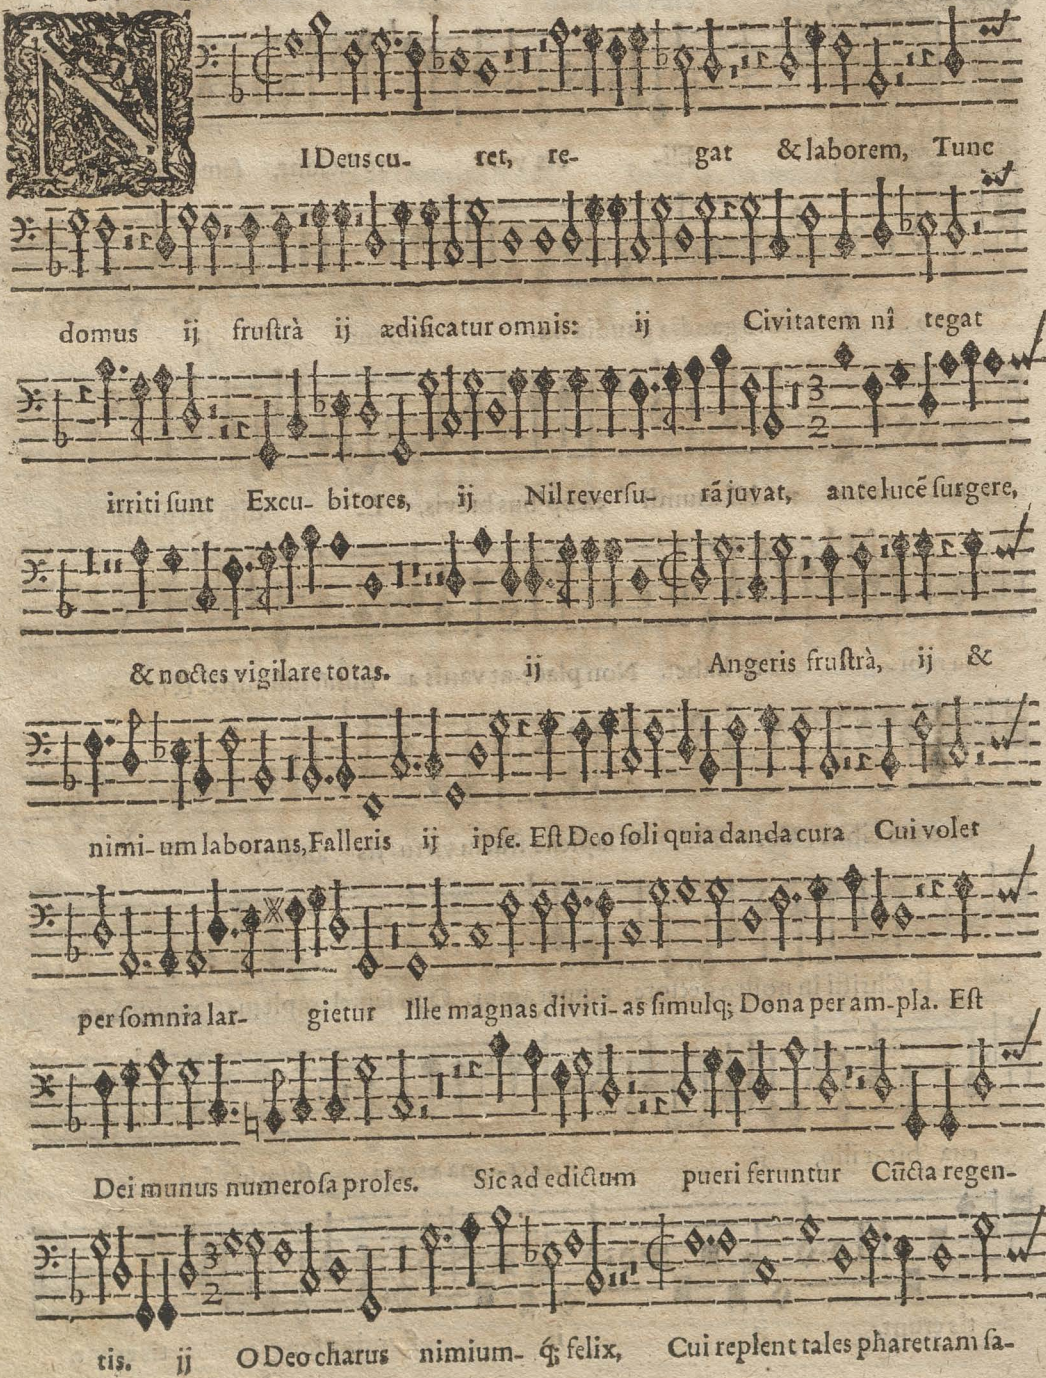 NI Deus cu- ret, re- gat & laborem, Tunc
domus ij frustrà ij ædificatur omnis: ij Civitatem nî tegat
irriti sunt Excu- bitores, ij Nil reversu- rã juvat, ante lucẽ surgere,
& noctes vigilare totas. ij Angeris frustrà, ij &
nimi- um laborans, Falleris ij ipse. Est Deo soli quia danda cura Cui volet
per somnia lar- gietur Ille magnas diviti- as simulq; Dona per am- pla. Est
Dei munus numerosa proles. Sic ad edictum pueri feruntur Cũcta regen-
tis. ij O Deo charus nimium- q́; felix, Cui replent tales pharetram sa-